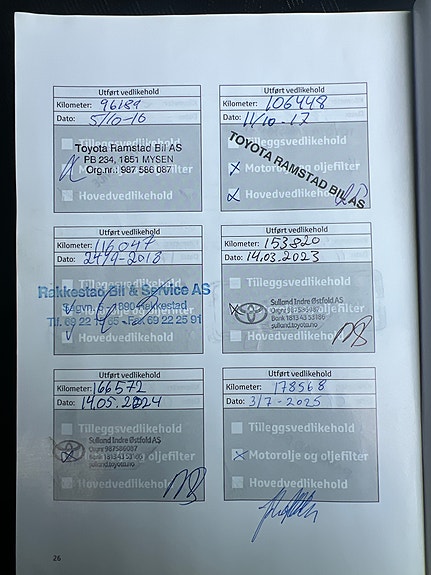 Utført vedlikehold
Kilometer: 96181
Dato: 5/10-16
Tilleggsvedlikehold
Toyota Ramstad Bil AS
PB 234, 1851 MYSEN
Org.nr.: 987 586 087
Motorolje og oljefilter
Hovedvedlikehold
Utført vedlikehold
Kilometer: 106448
Dato: 11/10-17
Tilleggsvedlikehold
TOYOTA RAMSTAD BIL AS
Motorolje og oljefilter
Hovedvedlikehold
Utført vedlikehold
Kilometer: 116047
Dato: 24/9-2018
Tilleggsvedlikehold
Rakkestad Bil & Service AS
1890 Rakkestad
Tlf. 69 22 Fax 69 22 25 91
Hovedvedlikehold
Utført vedlikehold
Kilometer: 153820
Dato: 14.03.2023
Tilleggsvedlikehold
Sulland Indre Østfold AS
Orgnr 987586087
Bank 1813 43 53186
sulland.toyota.no
Motorolje og oljefilter
Hovedvedlikehold
Utført vedlikehold
Kilometer: 166572
Dato: 14.05.2024
Tilleggsvedlikehold
Sulland Indre Østfold AS
Orgnr 987586087
Bank 1813 43 53186
sulland.toyota.no
Motorolje og oljefilter
Hovedvedlikehold
Utført vedlikehold
Kilometer: 178568
Dato: 3/7-2025
Tilleggsvedlikehold
Motorolje og oljefilter
Hovedvedlikehold
26